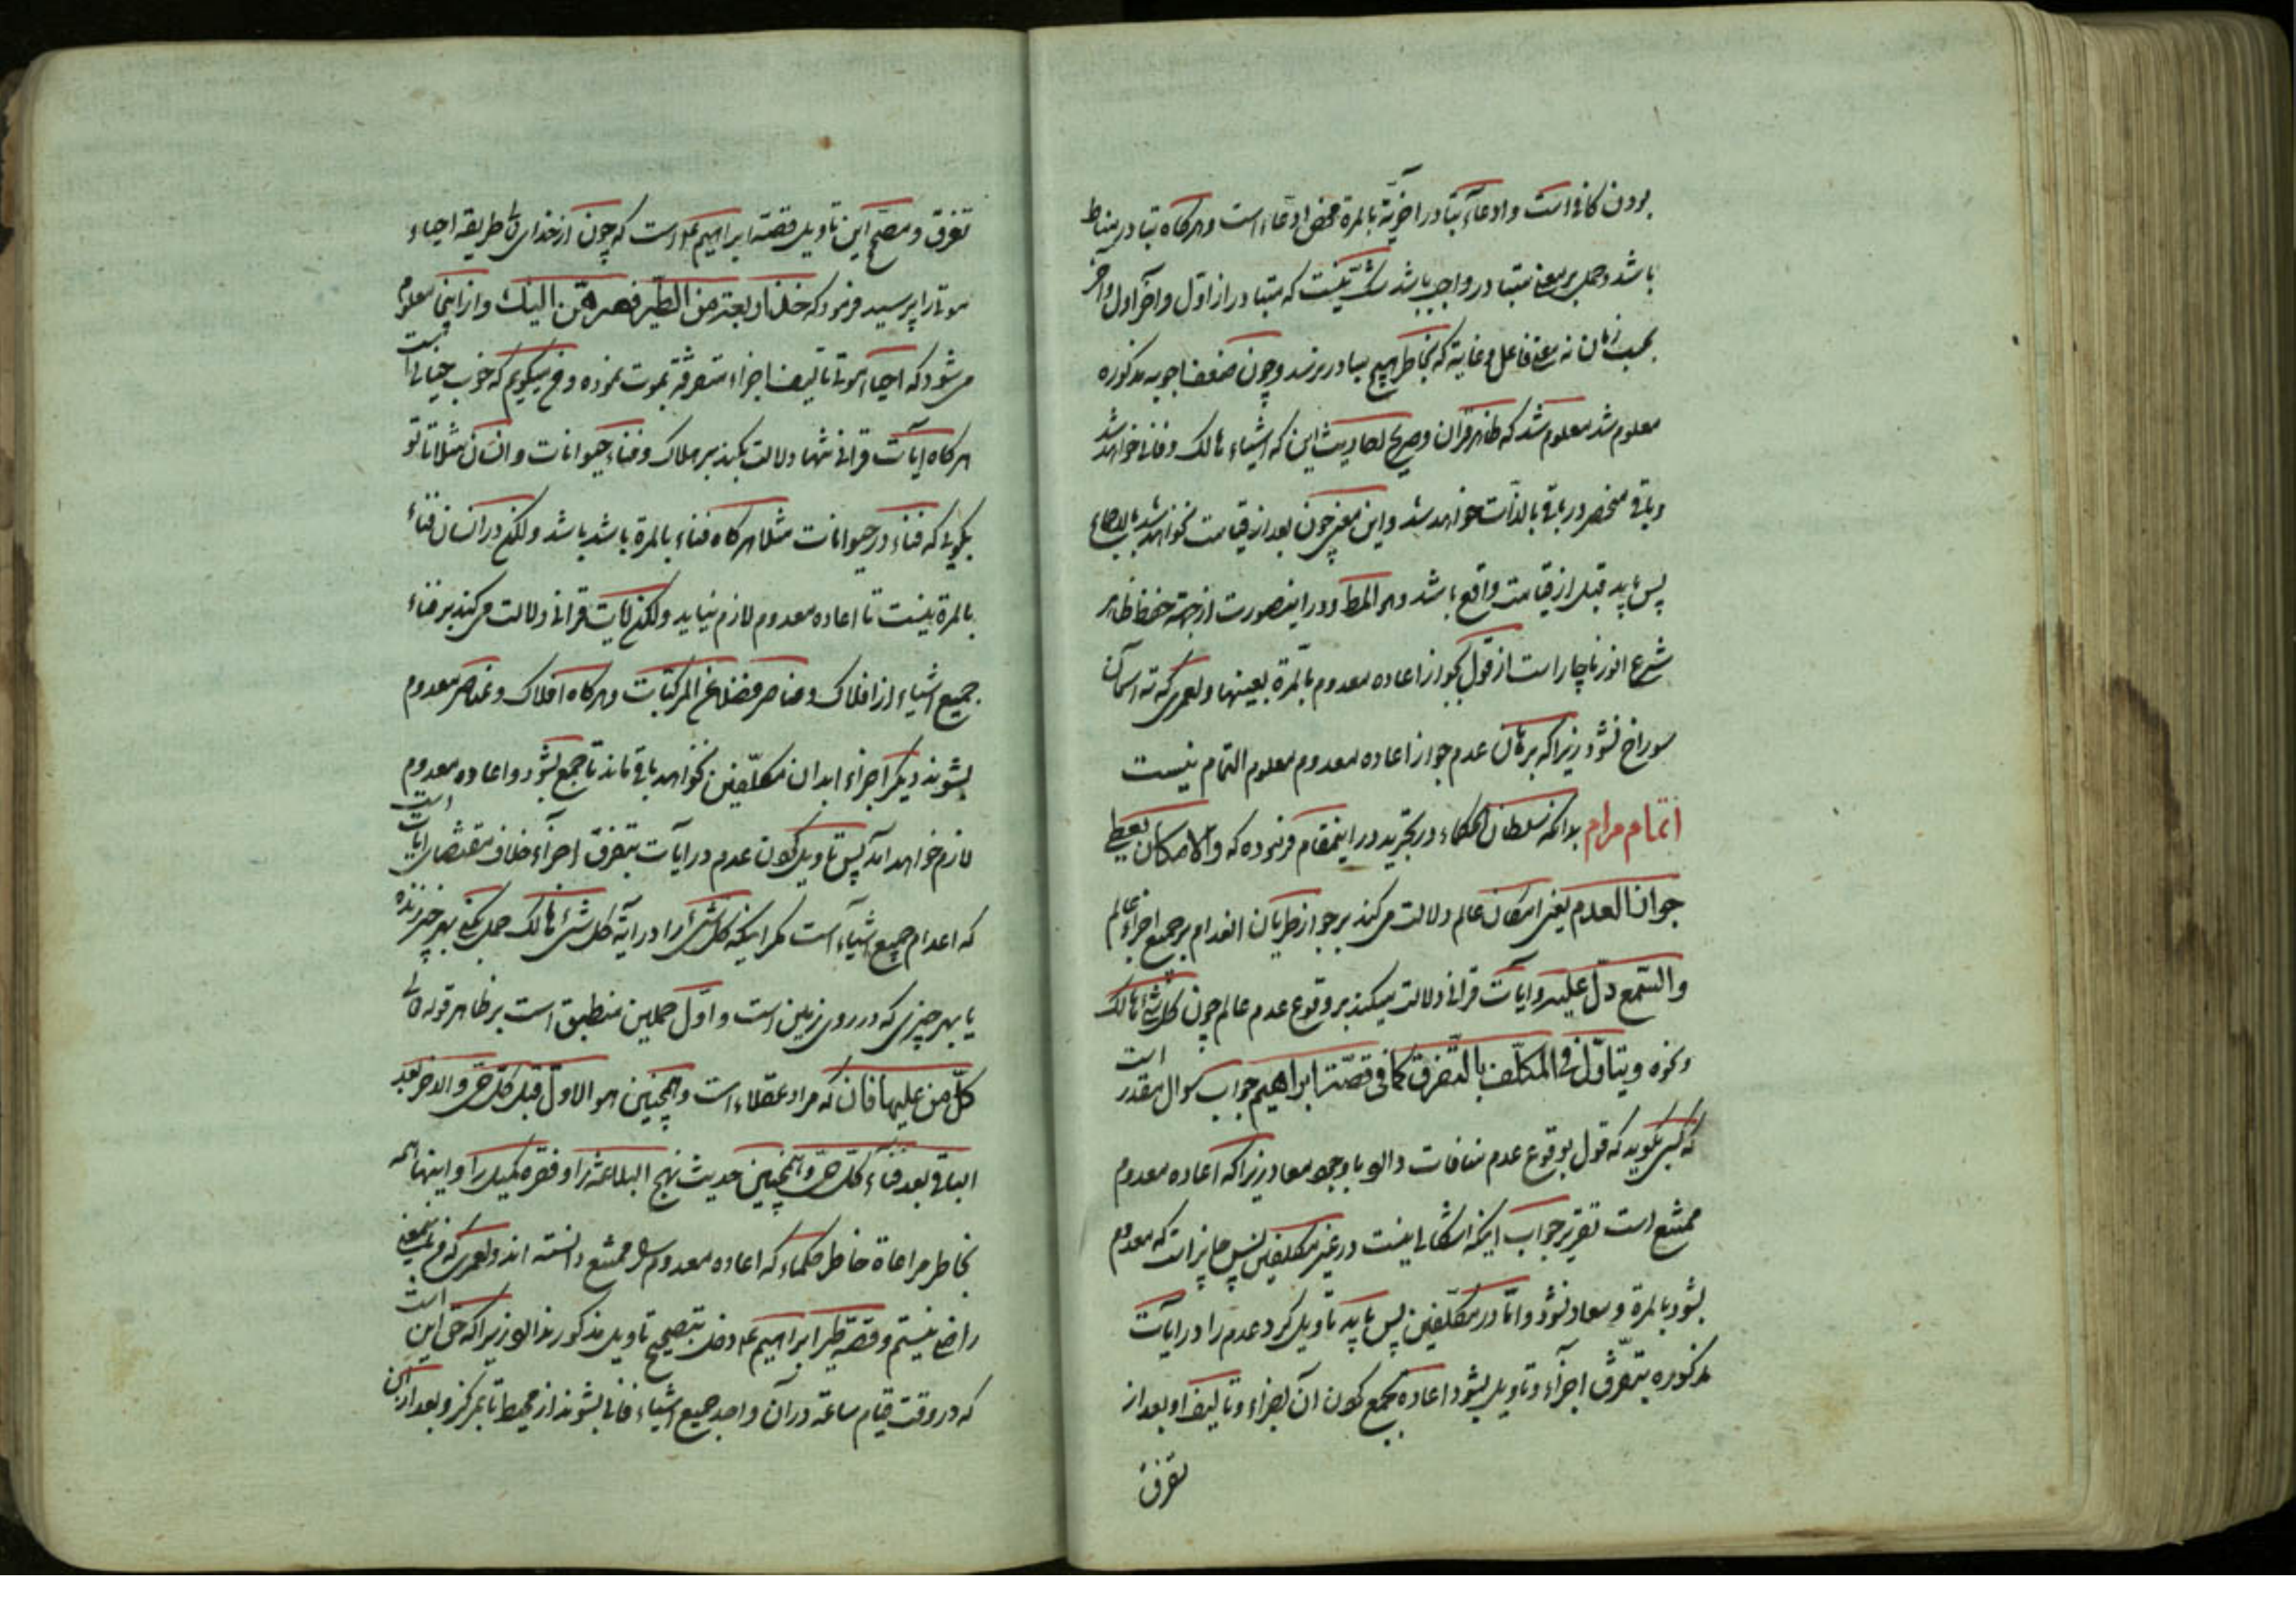 بودن کافی است و ادعاء تبادر اخریة بالمرة محض ادعاء است و هرکاه تبادر مناط
باشد و حمل بر معنی متبادر واجب باشد شک نیست که متبادر از اول و آخر اول و آخر
بحسب زمان نه معنی فاعل و غایة که بخاطر هیچ متبادر نرسد و چون ضعف اجوبه مذکوره
معلوم شد معلوم شد که ظاهر قرآن و صریح احادیث این که اشیاء هالک و فانی خواهد شد
و باقی منحصر در باقی بالذات خواهد شد و این معنی چون بعد از قیامت نخواهد شد بالاجماع
پس باید قبل از قیامت واقع باشد و هو المط و در اینصورت از جهة حفظ ظاهر
شرع انور ناچار است از قول بجواز اعاده معدوم بالمرة بعینها و لعمری که ته آسمان
سوراخ نشود زیرا که برهان عدم جواز اعاده معدوم معلوم التمام نیست
اتمام مرام بدانکه سلطان الحکماء در تجرید در اینمقام فرموده که والامکان یعطی
جواز العدم یعنی امکان عالم دلالت می کند بر جواز طریان انعدام بر جمیع اجزاء عالم
والسمع دل علیه و آیات قرانی دلالت میکند بر وقوع عدم عالم چون کل شئ هالک
و نحوه و یتاول فی المکلف بالتفرق کما فی قصة ابراهیم جواب سوال مقدر است
که کسی بکوید که قول بوقوع عدم منافات دارد با وجوب معاد زیرا که اعاده معدوم
ممتنع است تقریر جواب اینکه اشکالی نیست در غیر مکلفین پس جایز است که معدوم
بشود بالمرة و معاد نشود و اما در مکلفین پس باید تاویل کرد عدم را در آیات
مذکوره بتفرق اجزاء و تاویل بشود اعاده بجمع کردن آن اجزاء و تالیف او بعد از
تفرق
تفرق و مصحح این تاویل قصه ابراهیم ع است که چون از خدای تعالی طریقه احیاء
موتی را پرسید فرمود که خذ اربعة من الطیر فصرهن الیک و از اینجا معلوم
می شود که احیاء موتی تالیف اجزاء متفرقة بموت نموده و فقیر میکویم که خوب خیالی است
هرکاه آیات قرانی تنها دلالت بکند بر هلاک و فناء حیوانات و انسان مثلا تا تو
بکوئی که فناء در حیوانات مثلا هرکاه فناء بالمرة باشد باشد و لکن در انسان فناء
بالمرة نیست تا اعاده معدوم لازم نیاید و لکن آیات قرانی دلالت می کند بر فناء
جمیع اشیاء از افلاک و عناصر فضلا عن المرکبات و هرکاه افلاک و عناصر معدوم
بشوند دیکر اجزاء ابدان مکلفین نخواهد باقی ماند تا جمع بشود و اعاده معدوم
لازم خواهد آمد پس تاویل کردن عدم در آیات بتفرق اجزاء خلاف مقتضای آیات است
که اعدام جمیع اشیاء است مکر اینکه کل شئ را در آیة کل شئ هالک حمل بکنی بهر چیز زنده
یا بهر چیزی که در روی زمین است و اول حملین منطبق است بر ظاهر قوله تعالی
کل من علیها فان که مراد عقلاء است و همچنین هو الاول قبل کل حی والاخر بعد
الباقی بعد فناء کل حی و همچنین حدیث نهج البلاغه را و فقره کمیل را و اینها همه
بخاطر مراعاة خاطر حکماء که اعاده معدوم را ممتنع دانسته اند و لعمری که من بمعنی
راضی نیستم و قصه طیر ابراهیم ع دخلی بتصحیح تاویل مذکور ندارد زیرا که حق این است
که در وقت قیام ساعة در آن واحد جمیع اشیاء فانی بشوند از محیط تا بمرکز و بعد از آن